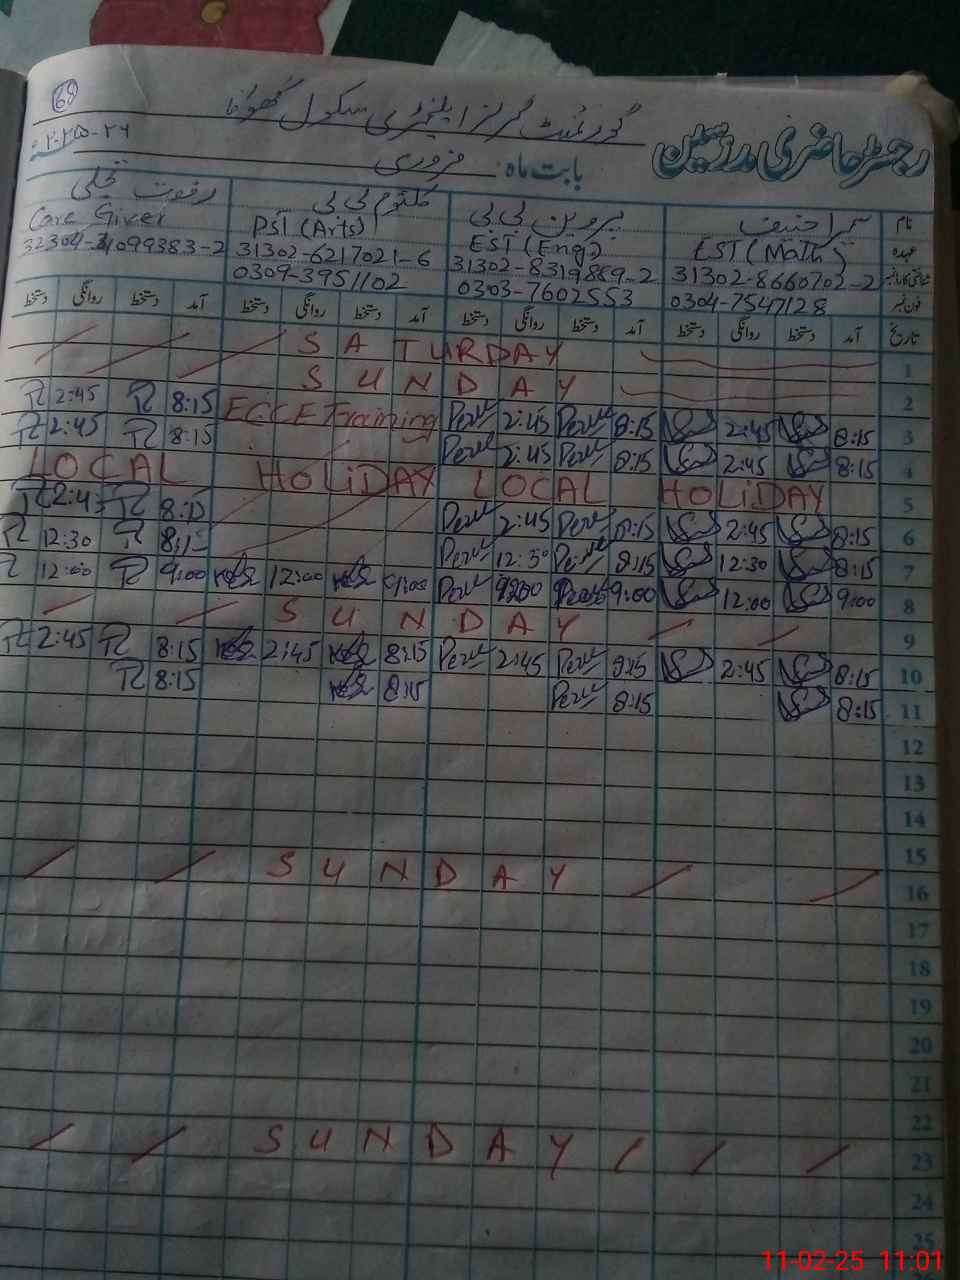 68
گورنمنٹ گرلز ایلیمنٹری سکول
رجسٹر حاضری مدرسین
بابت ماہ: فروری
نام سمیرا حنیف پروین بی بی کلثوم بی بی
عہدہ EST (Math) EST (Eng) PST (Arts) Care Giver
31302-8660702-2 31302-8319889-2 31302-6217021-6
فون نمبر 0304-7547128 0303-7602553 0309-3951102
تاریخ آمد دستخط روانگی دستخط آمد دستخط روانگی دستخط آمد دستخط روانگی دستخط آمد دستخط روانگی دستخط
SATURDAY 1
SUNDAY 2
2:45 8:15 ECCE Training 2:45 8:15 2:45 8:15 3
2:45 8:15 2:45 8:15 2:45 8:15 4
LOCAL HOLiDAY LOCAL HOLiDAY 5
2:45 8:15 2:45 8:15 2:45 8:15 6
12:30 8:15 12:30 8:15 12:30 8:15 7
12:00 9:00 12:00 9:00 9:00 12:00 9:00 8
SUNDAY 9
2:45 8:15 2:45 8:15 2:45 8:15 2:45 8:15 10
8:15 8:15 8:15 8:15 11
12
13
14
15
SUNDAY 16
17
18
19
20
21
22
SUNDAY 23
24
25
11-02-25 11:01